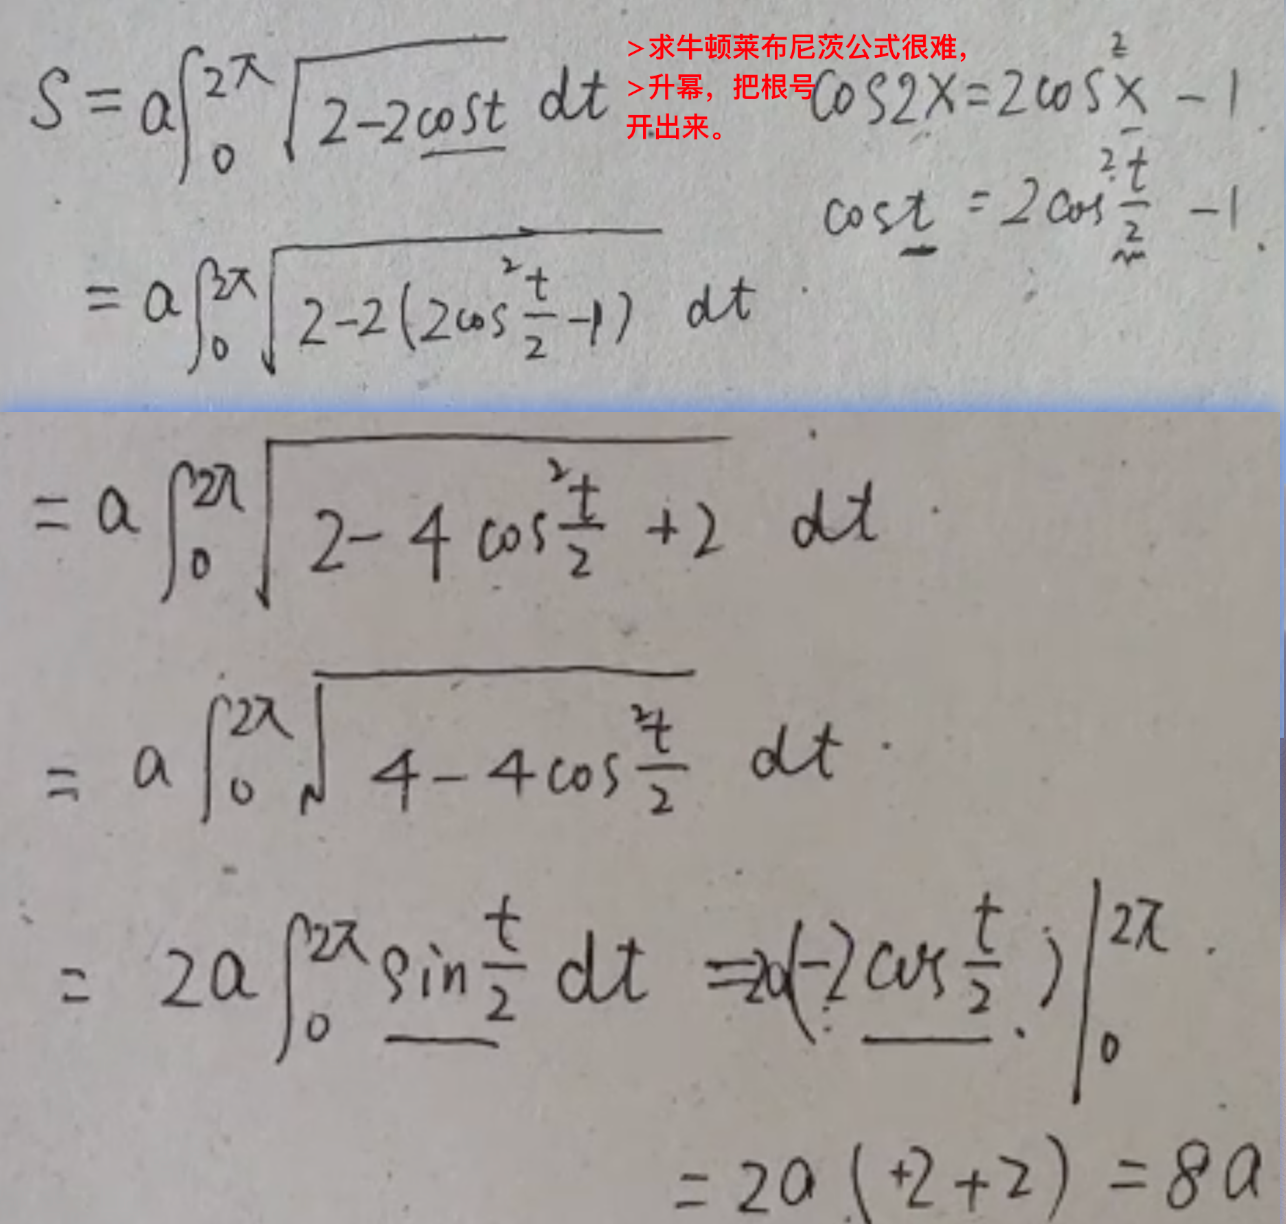 S = a∫₀^{2π} √(2-2cost) dt
>求牛顿莱布尼茨公式很难，
>升幂，把根号
开出来。
cos2x=2cos²x -1
cost = 2cos²t/2 -1.
= a∫₀^{2π} √(2-2(2cos²t/2-1)) dt
= a∫₀^{2π} √(2-4cos²t/2+2) dt
= a∫₀^{2π} √(4-4cos²t/2) dt
= 2a∫₀^{2π} sin t/2 dt =2a(-2cos t/2)|₀^{2π}
= 2a(+2+2) = 8a